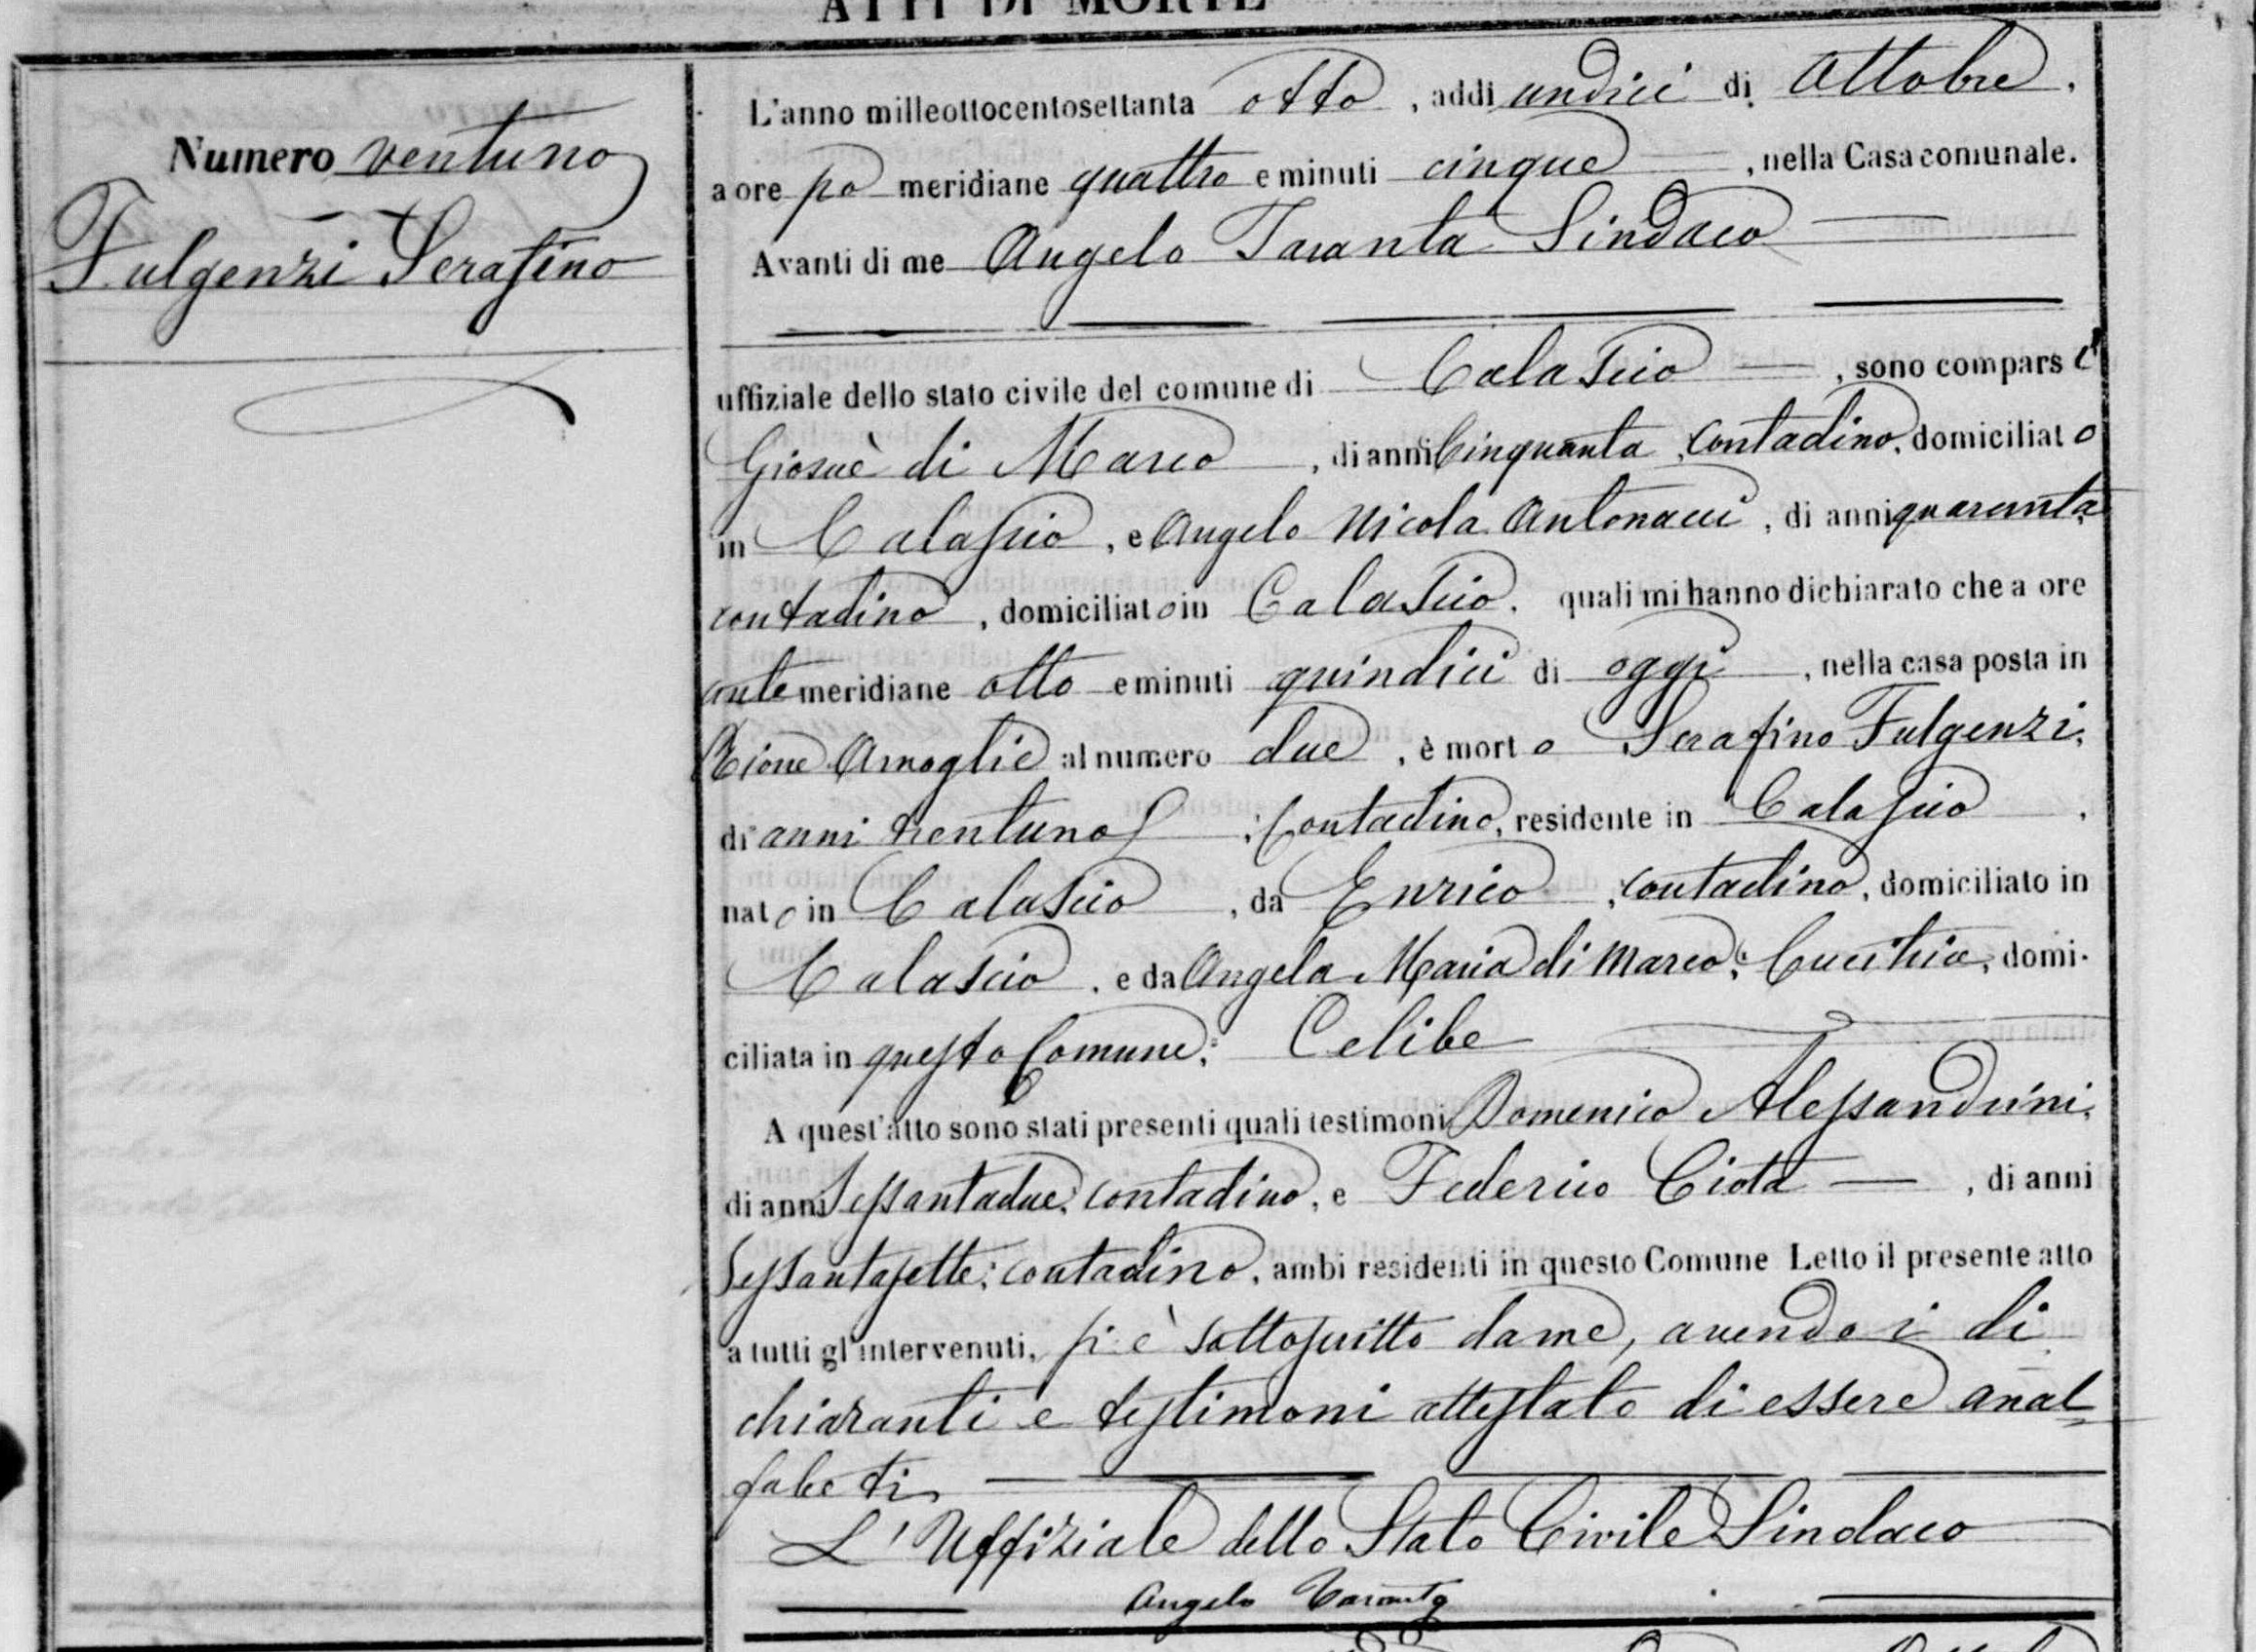 ATTI DI MORTE
Numero ventuno
Fulgenzi Serafino
L'anno milleottocentosettanta otto, addì undici di Ottobre,
a ore po meridiane quattro e minuti cinque, nella Casa comunale.
Avanti di me Angelo Taranta Sindaco
uffiziale dello stato civile del comune di Calascio, sono comparsi
Giosuè di Marco, di anni Cinquanta, Contadino, domiciliato
in Calascio, e Angelo Nicola Antonacci, di anni quaranta
contadino, domiciliato in Calascio, quali mi hanno dichiarato che a ore
ante meridiane otto e minuti quindici di oggi, nella casa posta in
Rione Amoglie al numero due, è morto Serafino Fulgenzi,
di anni trentuno, Contadino, residente in Calascio,
nato in Calascio, da Enrico, contadino, domiciliato in
Calascio, e da Angela Maria di Marco, Cucitrice, domi-
ciliata in questo Comune, Celibe
A quest'atto sono stati presenti quali testimoni Domenico Alessandrini,
di anni Sessantadue, contadino, e Federico Ciota, di anni
Sessantasette, contadino, ambi residenti in questo Comune Letto il presente atto
a tutti gl'intervenuti, si è sottoscritto da me, avendo i di
chiaranti e testimoni attestato di essere anal=
fabeti
L'Uffiziale dello Stato Civile Sindaco
Angelo Taranta